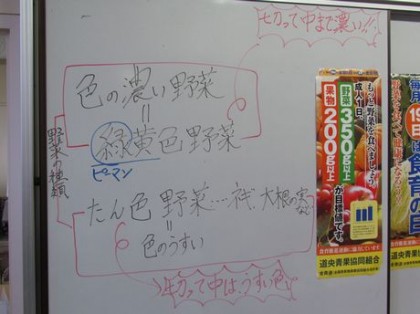 切って中まで濃い!!
色の濃い野菜
=
緑黄色野菜
ピーマン
野菜の種類
たん色野菜…ネギ、大根の実など
=
色のうすい
切って中はうすい色
もっと野菜を食べましょう。
成人1日、
野菜350g以上
果物200g以上
が目標です。
道央青果協同組合
毎月19日は食育の日
道央青果協同組合